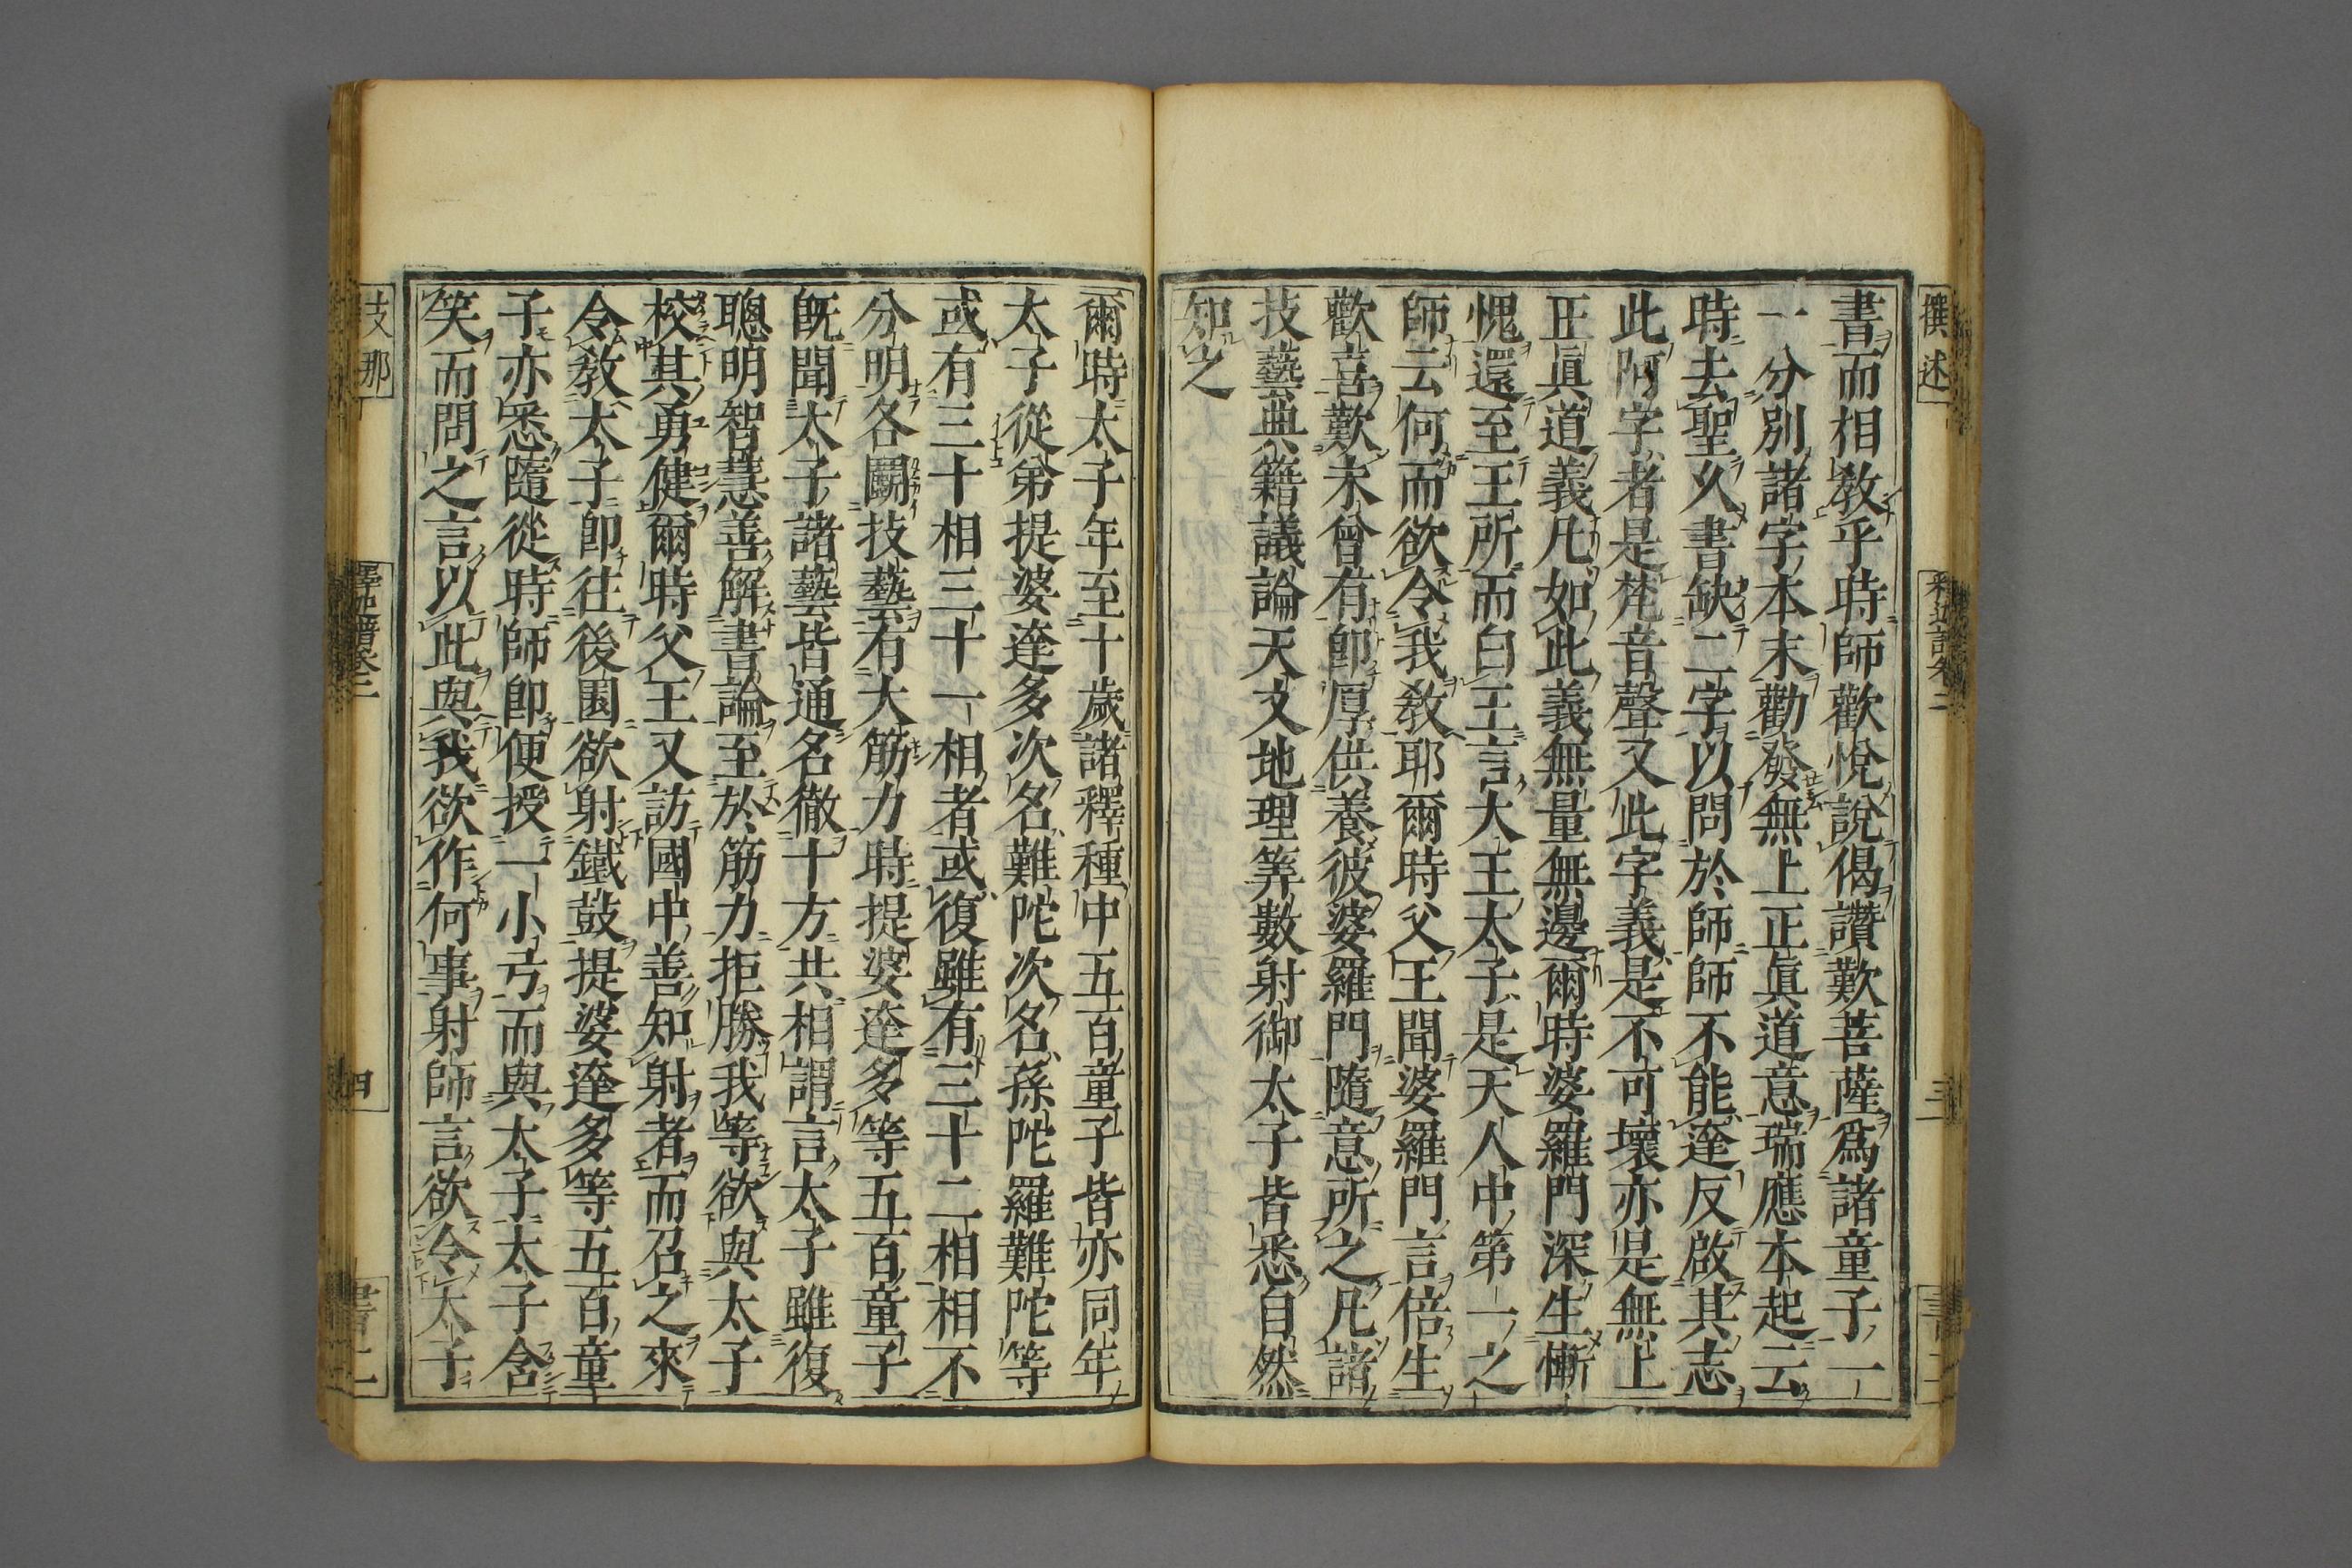 撰述
釋迦譜卷二
三
書二
書而相敎乎時師歡悅說偈讚歎菩薩爲諸童子一
一分別諸字本末勸發無上正眞道意瑞應本起云
時去聖久書缺二字以問於師師不能達反啟其志
此阿字者是梵音聲又此字義是不可壞亦是無上
正眞道義凡如此義無量無邊爾時婆羅門深生慚
愧還至王所而白王言大王太子是天人中第一之
師云何而欲令我敎耶爾時父王聞婆羅門言倍生
歡喜歎未曾有卽厚供養彼婆羅門隨意所之凡諸
技藝典籍議論天文地理筭數射御太子皆悉自然
知之
爾時太子年至十歲諸釋種中五百童子皆亦同年
太子從弟提婆達多次名難陀次名孫陀羅難陀等
或有三十相三十一相者或復雖有三十二相相不
分明各鬬技藝有大筋力時提婆達多等五百童子
旣聞太子諸藝皆通名徹十方共相謂言太子雖復
聰明智慧善解書論至於筋力拒勝我等欲與太子
校其勇健爾時父王又訪國中善知射者而召之來
令敎太子卽往後園欲射鐵鼓提婆達多等五百童
子亦悉隨從時師卽便授一小弓而與太子太子含
笑而問之言以此與我欲作何事射師言欲令太子
支那
釋迦譜卷二
四
書二